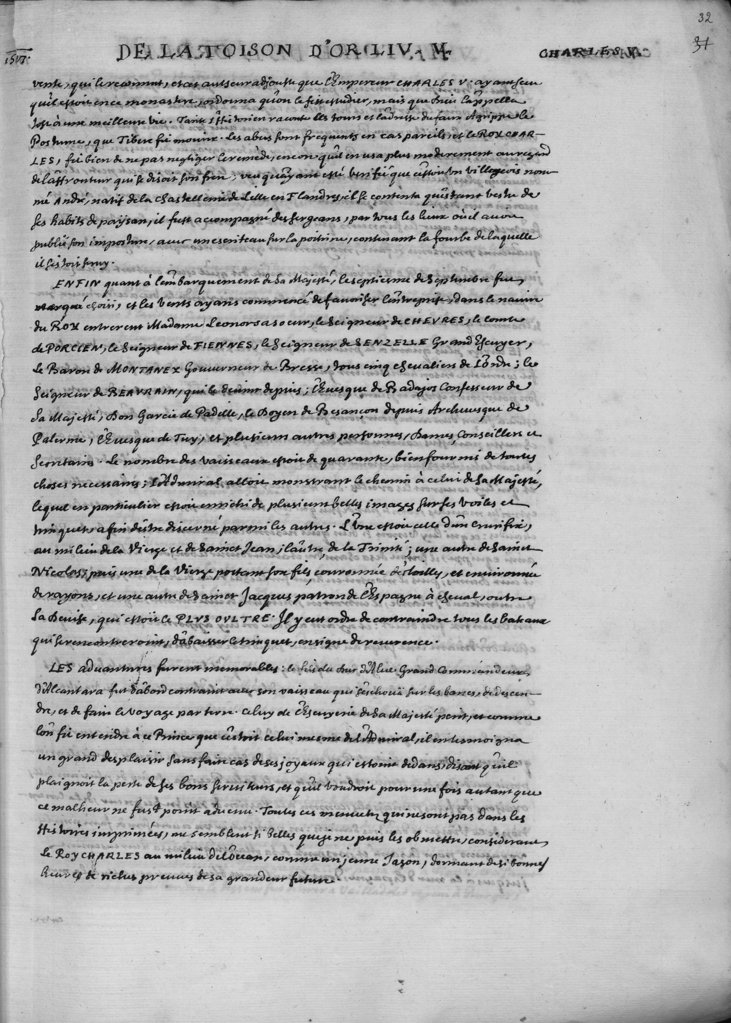 32
31
1517.
DE LA TOISON D'OR LIV. VI.
CHARLES V.
verité, qui le reconnut, et cet autheur adjouste que l'Empereur CHARLES V. ayant sceu
qu'il estoit en ce monastere, ordonna qu'on le fist estudier, mais que Dieu l'appella
tost à une meilleure vie. Tacite l'Historien raconte les tours et l'adresse du faux Agrippe le
Postume, que Tibere fit mourir. Les abus sont frequents en cas pareils, et le ROY CHAR-
LES, fit bien de ne pas negliger le remede, encore qu'il en usa plus moderement au regard
de l'affronteur qui se disoit son frere; veu qu'ayant esté verifié que c'estoit un villageois nom-
mé André, natif de la Chastellenie de Lille en Flandres, il se contenta qu'estant vestu de
ses habits de paysan, il fust accompagné des sergeans, par tous les lieux où il avoit
publié son imposture, avec un escriteau sur la poitrine, contenant la fourbe de laquelle
il s'estoit servy.
ENFIN quant à l'embarquement de sa Majesté, le septiesme de Septembre fut
choisi, et les vents ayans commencé de favoriser l'entreprise, dans le navire
du ROY entrerent Madame Leonor sa soeur, le Seigneur de CHEVRES, le Comte
de PORCIEN, le Seigneur de FIENNES, le Seigneur de SENZELLE Grand Escuyer,
le Baron de MONTANEX Gouverneur de Bresse, tous cinq chevaliers de l'Ordre; le
Seigneur de BEAVRAIN, qui le devint depuis; l'Evesque de Badajos Confesseur de
sa Majesté, Don Garcie de Padille, le Doyen de Besançon depuis Archevesque de
Palerme, l'Evesque de Tuy, et plusieurs autres personnes, Dames, Conseillers et
Secretaires. Le nombre des vaisseaux estoit de quarante, bien fourni de toutes
choses necessaires; l'Admiral alloit monstrant le chemin à celui de sa Majesté,
lequel en particulier estoit enrichi de plusieurs belles images sur ses voiles et
trinquets, afin d'estre discerné parmi les autres. L'une estoit celle d'un Crucifix,
au milieu de la Vierge et de Sainct Jean, l'autre, de la Trinité; une autre de Sainct
Nicolas; puis une de la Vierge portant son fils, couronnée d'estoilles, et environnée
de rayons, et une autre de Sainct Jacques patron de l'Espagne à cheval, outre
sa Devise, qui estoit le PLUS OULTRE. Il y eut ordre de contraindre tous les bateaux
qui se rencontreroient, d'abaisser le trinquet, en signe de reverence.
LES advantures furent memorables: le fils du Duc d'Alve Grand Commandeur
d'Alcantara fut d'abord contraint avec son vaisseau qui s'eschoua sur les bancs, de descen-
dre, et de faire le voyage par terre. Celuy de l'Escuyerie de sa Majesté perit, et comme
l'on fit entendre à ce Prince que c'estoit celui mesme de l'Admiral, il en tesmoigna
un grand desplaisir sans faire cas de ses joyaux qui estoient dedans, disant qu'il
plaignoit la perte de ses bons serviteurs, et qu'il voudroit pour une fois autant que
ce malheur ne fust point advenu. Toutes ces qui ne sont pas dans les
Histoires imprimées, me semblent si belles que je ne puis les obmettre, considerant
le ROY CHARLES au milieu de l'Ocean, comme un jeune Jason, donnant de si bonnes
heures de riches preuves de sa grandeur future.